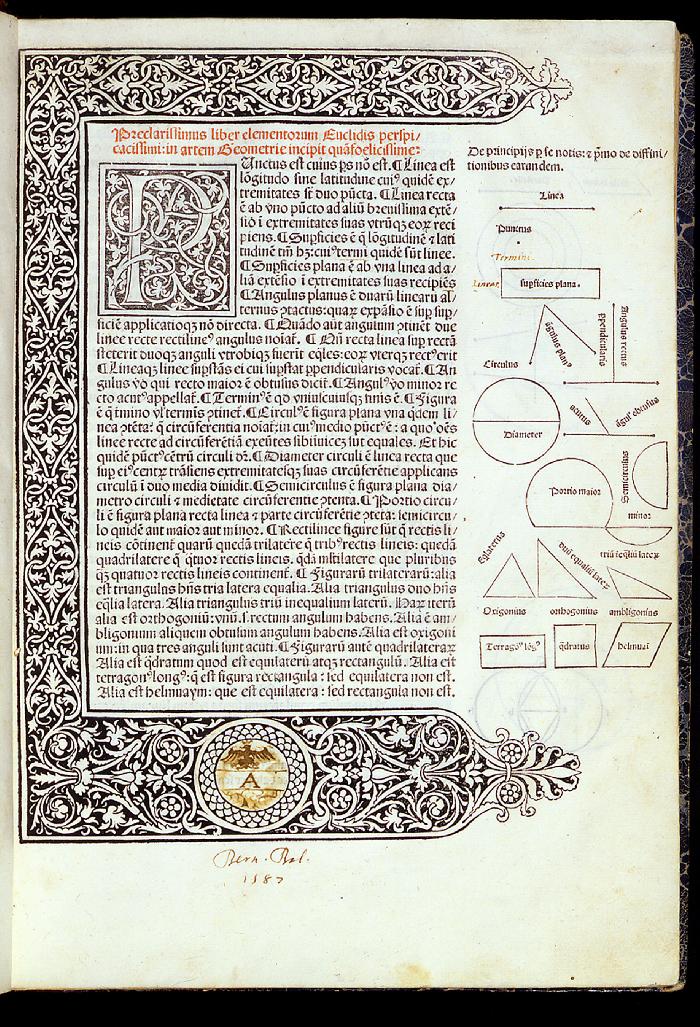 Preclarissimus liber elementorum Euclidis perspi/
cacissimi: in artem Geometrie incipit quãfoelicissime:
PUnctus est cuius ps nõ est. ¶ Linea est
lõgitudo sine latitudine cuiꝰ quidẽ ex/
tremitates sũt duo pũcta. ¶ Linea recta
ẽ ab vno pũcto ad aliũ breuissima extẽ/
sio ĩ extremitates suas vtrũqꝫ eoꝝ reci
piens. ¶ Supficies ẽ q̃ lõgitudinẽ ⁊ lati
tudinẽ tm̃ hꝫ: cuiꝰ termi quidẽ sũt linee.
¶ Supficies plana ẽ ab vna linea ad a/
liã extẽsio ĩ extremitates suas recipiẽs
¶ Angulus planus ẽ duarũ linearũ al/
ternus ↄtactus: quaꝝ expãsio ẽ sup sup/
ficiẽ applicatioqꝫ nõ directa. ¶ Quãdo aũt angulum ↄtinẽt due
linee recte rectilineꝰ angulus noiať. ¶ Qñ recta linea sup rectã
steterit duoqꝫ anguli vtrobiqꝫ fuerĩt eq̃les: eoꝝ vterqꝫ rectꝰ erit
¶ Lineaqꝫ linee supstãs ei cui supstat ppendicularis vocať. ¶ An
gulus vo qui recto maior ẽ obtusus diciť. ¶ Angulꝰ vo minor re
cto acutꝰ appellať. ¶ Terminꝰ ẽ qd vniuscuiusqꝫ finis ẽ. ¶ Figura
ẽ q̃ tmino vľ termis ↄtineť. ¶ Circulꝰ ẽ figura plana vna q̃dem li/
nea ↄtẽta: q̃ circũferẽtia noiať: in cuiꝰ medio pũctꝰ ẽ: a quo oẽs
linee recte ad circũferẽtiã exeũtes sibiinuicẽ sũt equales. Et hic
quidẽ pũctꝰ cẽtrũ circuli dr̃. ¶ Diameter circuli ẽ linea recta que
sup eiꝰ centꝝ trãsiens extremitatesqꝫ suas circũferẽtie applicans
circulũ ĩ duo media diuidit. ¶ Semicirculus ẽ figura plana dia/
metro circuli ⁊ medietate circũferentie ↄtenta. ¶ Portio circu/
li ẽ figura plana recta linea ⁊ parte circũferẽtie ↄtẽta: semicircu/
lo quidẽ aut maior aut minor. ¶ Rectilinee figure sũt q̃ rectis li/
neis cõtinẽť quarũ quedã trilatere q̃ tribꝰ rectis lineis: quedã
quadrilatere q̃ q̃tuor rectis lineis. q̃dã mľtilatere que pluribus
qꝫ quatuor rectis lineis continenť. ¶ Figurarũ trilaterarũ: alia
est triangulus hñs tria latera equalia. Alia triangulus duo hñs
eq̃lia latera. Alia triangulus triũ inequalium laterũ. Haꝝ iterũ
alia est orthogoniũ: vnũ .s. rectum angulum habens. Alia ẽ am/
bligonium aliquem obtusum angulum habens. Alia est oxigoni
um: in qua tres anguli sunt acuti. ¶ Figurarũ autẽ quadrilateraꝝ
Alia est q̃dratum quod est equilaterũ atqꝫ rectangulũ. Alia est
tetragonꝰ longꝰ: q̃ est figura rectangula: sed equilatera non est.
Alia est helmuaym: que est equilatera: sed rectangula non est.
De principijs p se notis: ⁊ pmo de diffini/
tionibus earundem.
Linea
Punctus
Termini.
Linea
supficies plana.
ãgulus planꝰ
Ppendicularis
Angulus rectus
Circulus
Diameter
acutus
ãgulꝰ obtusus
Portio maior
Semicirculus
minor
Eq̃laterus
duũ equaliũ lateꝝ
triũ ĩeq̃liũ lateꝝ
Oxigonius
orthogonius
ambligonius
Tetragonꝰ lõgꝰ
q̃dratus
helmuaĩ
A
1587